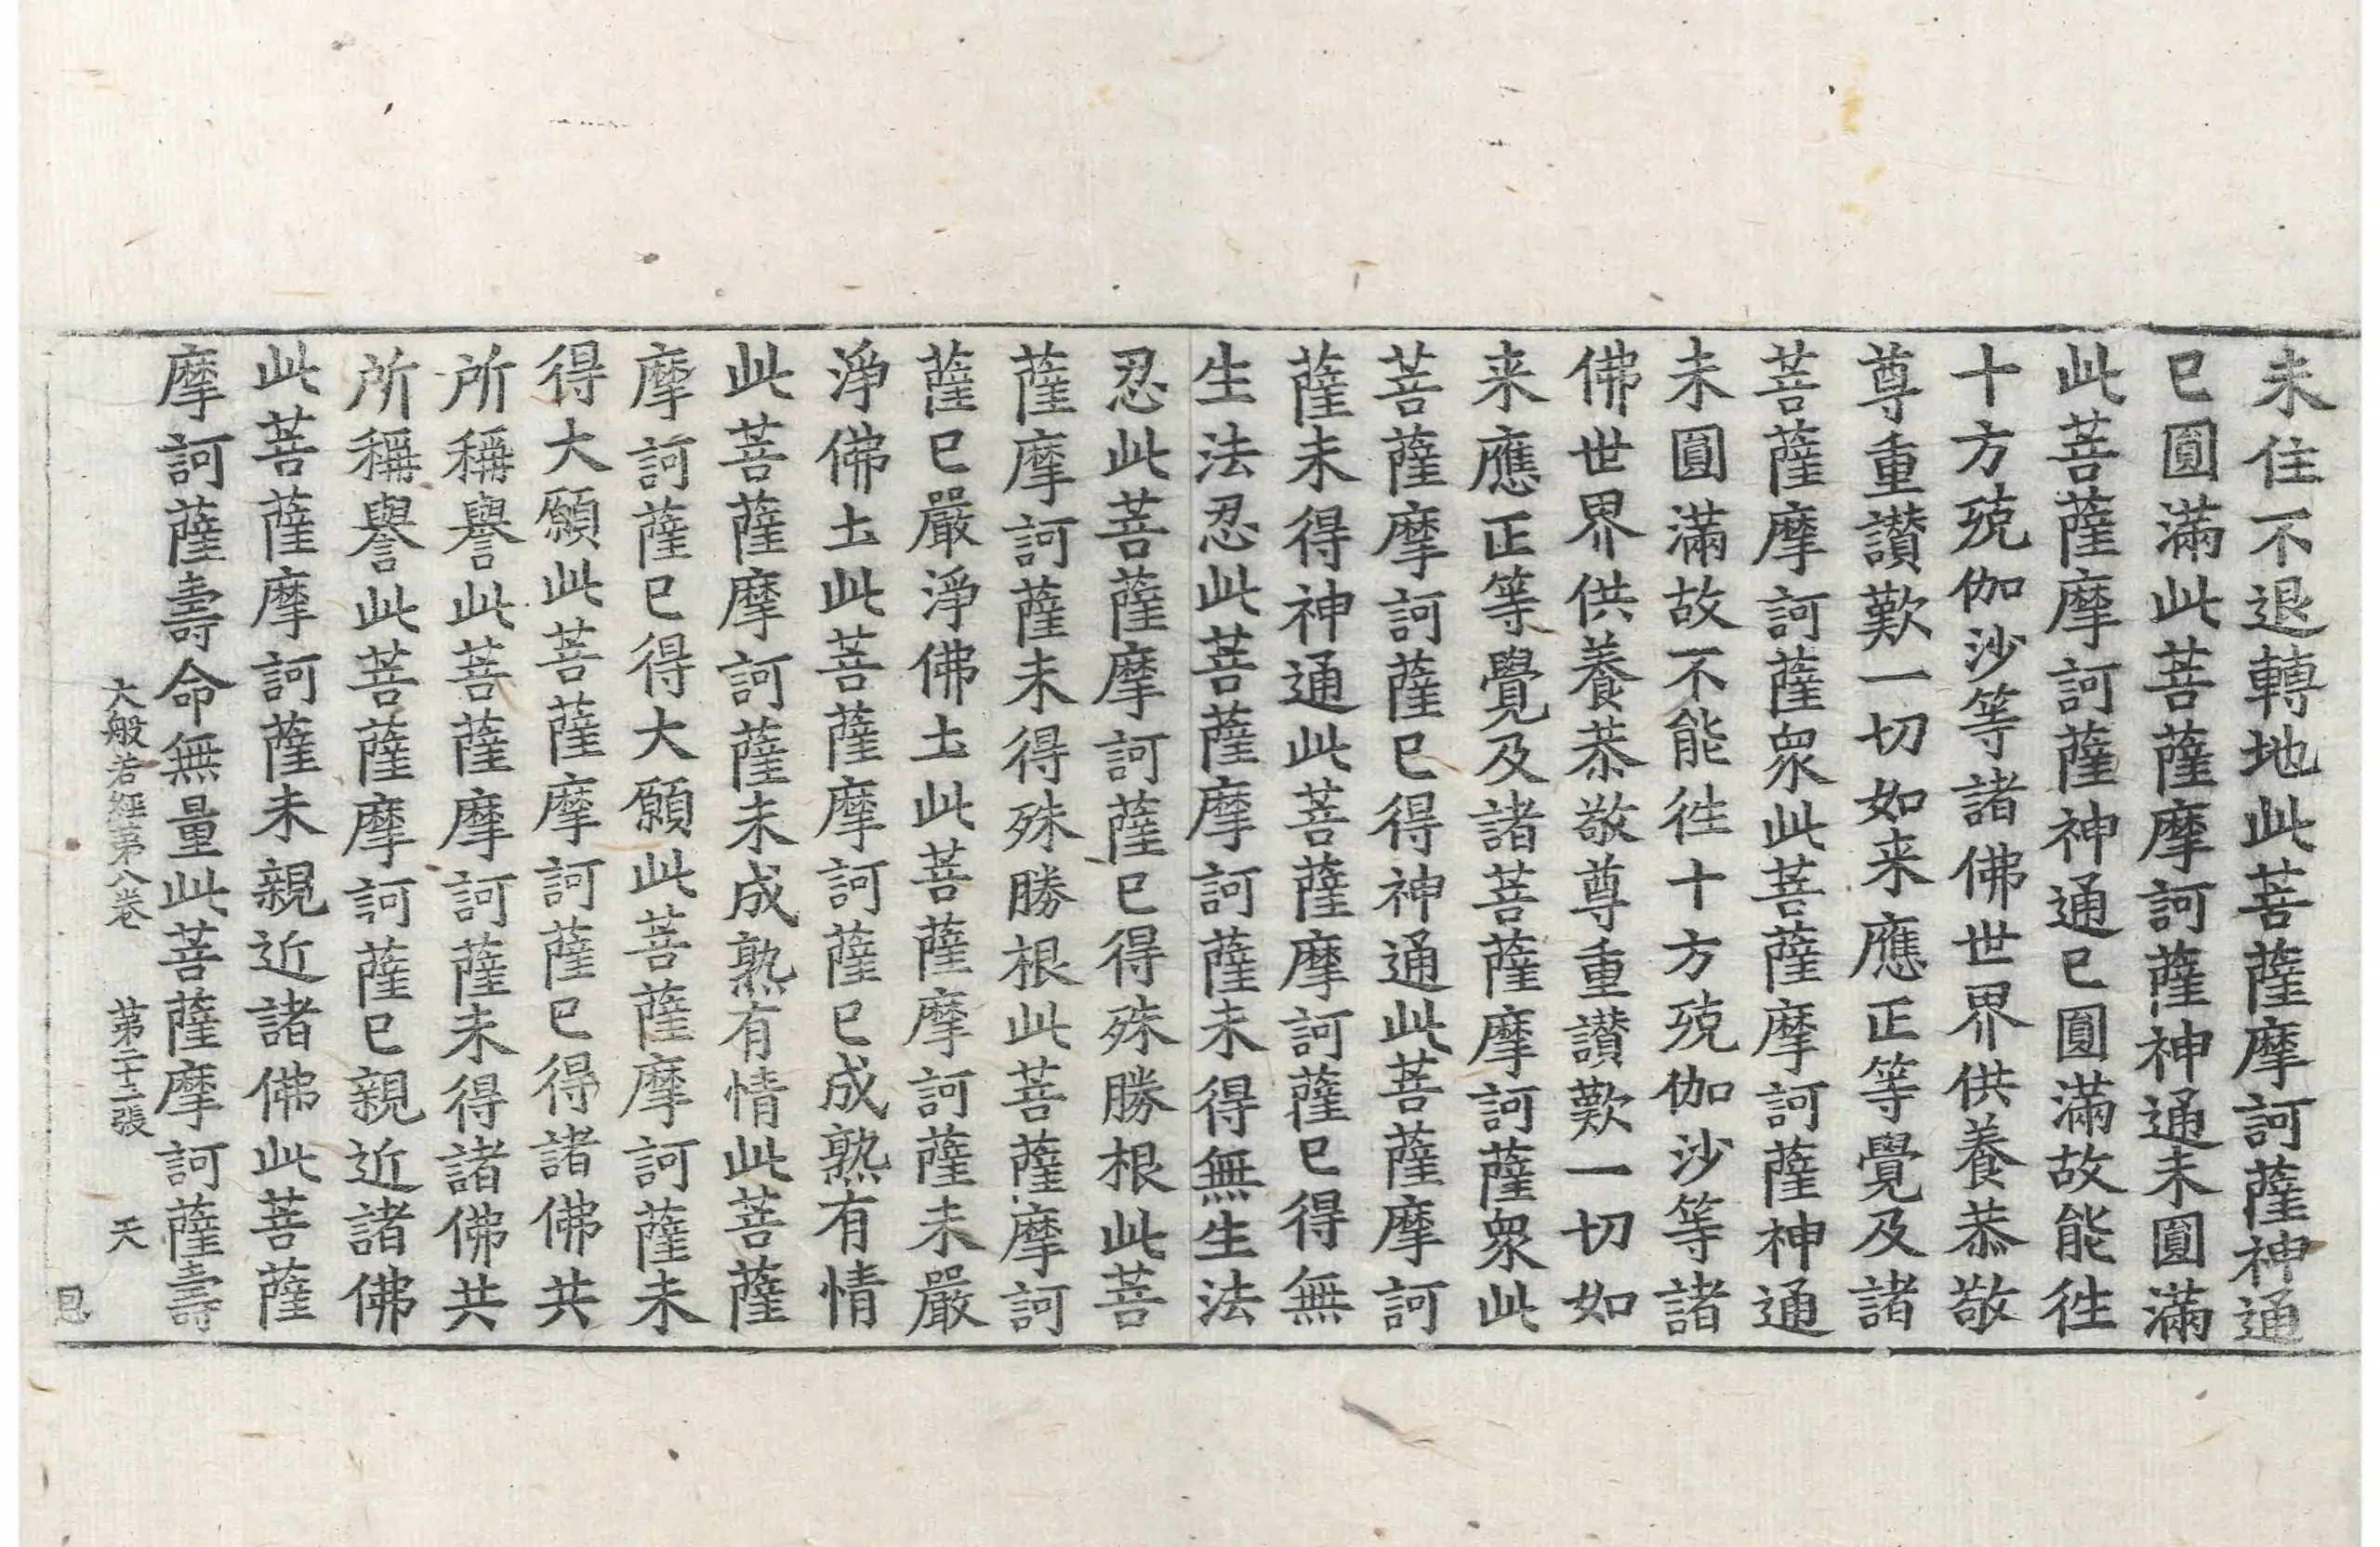 未住不退轉地此菩薩摩訶薩神通
已圓滿此菩薩摩訶薩神通未圓滿
此菩薩摩訶薩神通已圓滿故能往
十方殑伽沙等諸佛世界供養恭敬
尊重讃歎一切如来應正等覺及諸
菩薩摩訶薩衆此菩薩摩訶薩神通
未圓滿故不能往十方殑伽沙等諸
佛世界供養恭敬尊重讃歎一切如
来應正等覺及諸菩薩摩訶薩衆此
菩薩摩訶薩已得神通此菩薩摩訶
薩未得神通此菩薩摩訶薩已得無
生法忍此菩薩摩訶薩未得無生法
忍此菩薩摩訶薩已得殊勝根此菩
薩摩訶薩未得殊勝根此菩薩摩訶
薩已嚴淨佛土此菩薩摩訶薩未嚴
淨佛土此菩薩摩訶薩已成熟有情
此菩薩摩訶薩未成熟有情此菩薩
摩訶薩已得大願此菩薩摩訶薩未
得大願此菩薩摩訶薩已得諸佛共
所稱譽此菩薩摩訶薩未得諸佛共
所稱譽此菩薩摩訶薩已親近諸佛
此菩薩摩訶薩未親近諸佛此菩薩
摩訶薩壽命無量此菩薩摩訶薩壽
大般若經第八卷 第二十二張 天